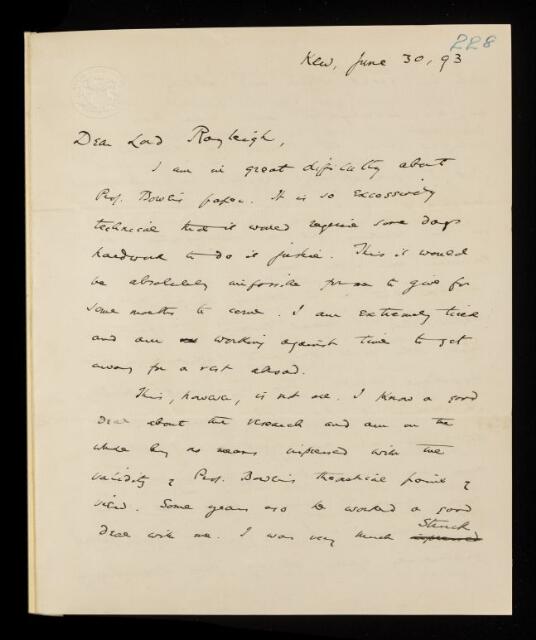 228
Kew, June 30, 93
Dear Lord Rayleigh,
I am in great difficulty about
Prof. Bower's paper. It is so excessively
technical that it would require some days
hardwork to do it justice. This it would
be absolutely impossible for me to give for
some months to come. I am extremely tired
and am working against time to get
away for a rest abroad.
This, however, is not all. I know a good
deal about the research and am on the
whole by no means impressed with the
validity of Prof. Bower's theoretical point of
view. Some years ago he worked a good
deal with me. I was very much struck